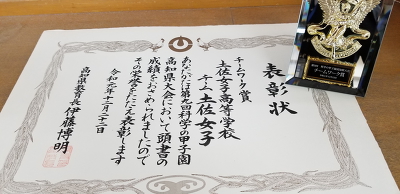 表彰状
チームワーク賞
土佐女子高等学校
チーム土佐女子
あなたがたは第九回科学の甲子園
高知県大会において頭書の
成績をおさめられましたので
その栄誉をたたえ表彰します
令和元年十一月
高知県教育長 伊藤博明
チームワーク賞